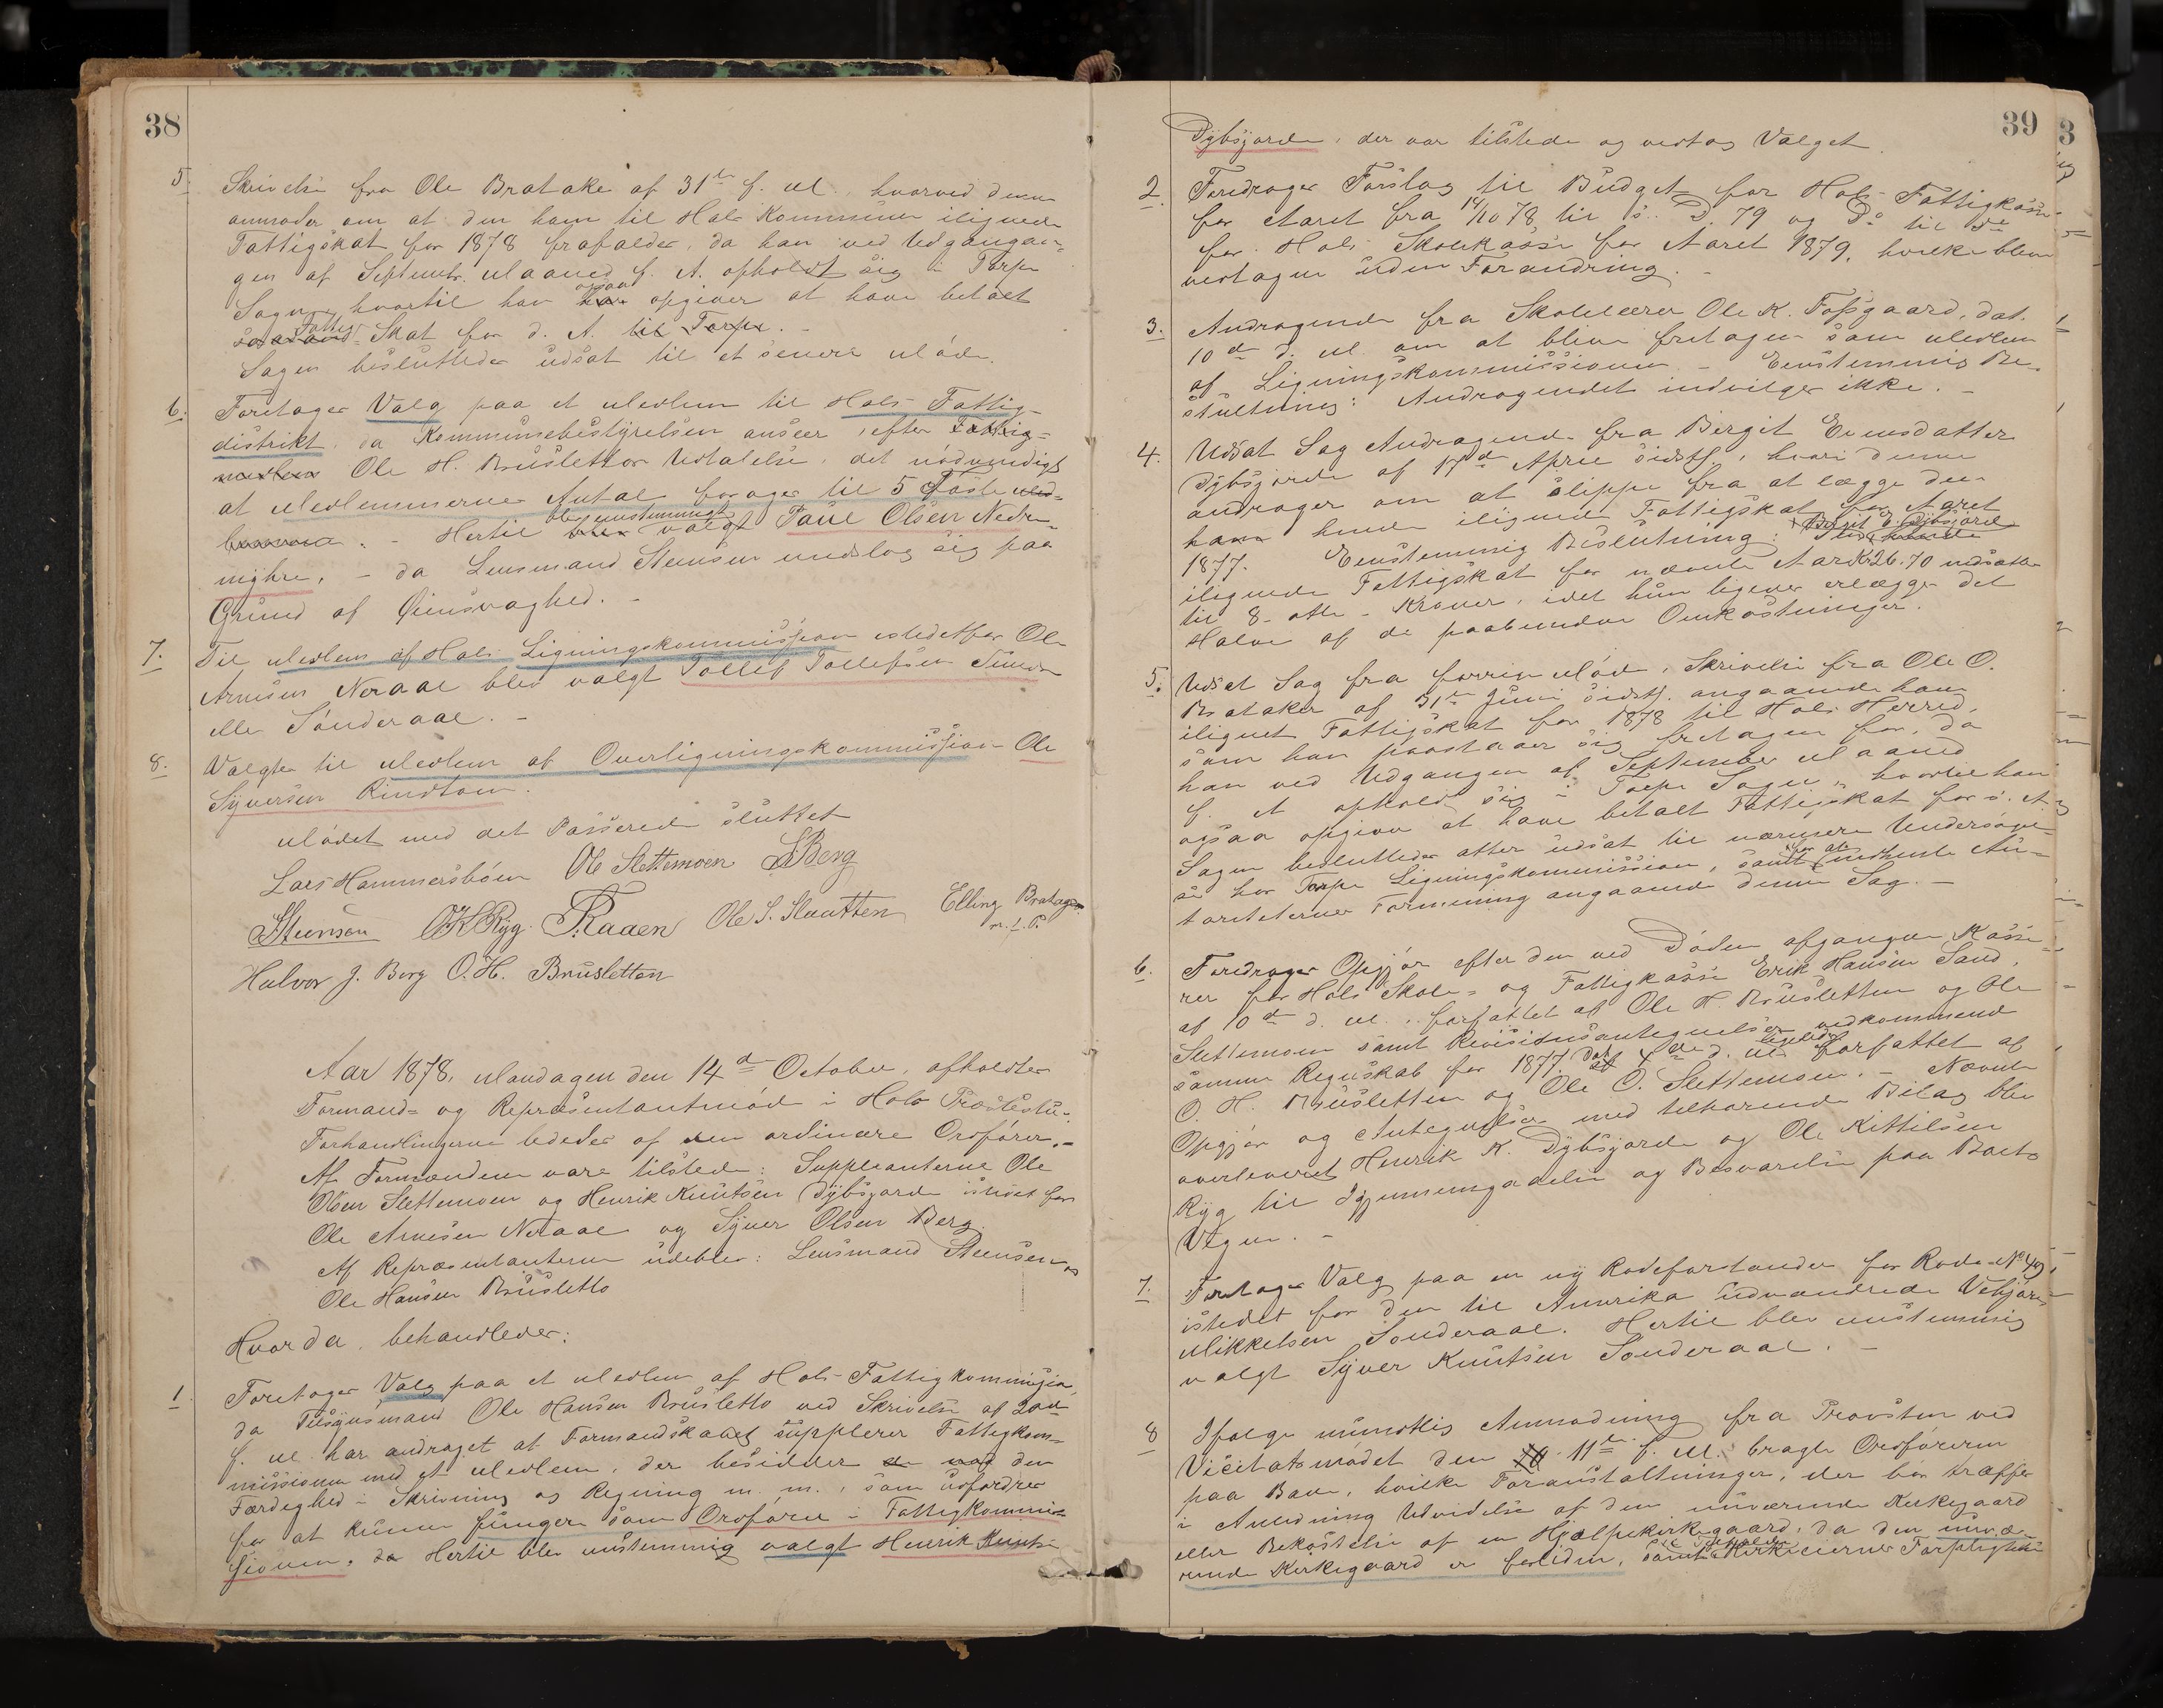 38
5. Skrivelse fra Ole Brataker af 31te f. M. hvorved denne
anmoder om at den ham til Hols Kommune ilignede
Fattigskat for 1878 frafalder, da han ved Udgangan-
gen af Septembr. Maaned f. A. opholdt sig i Torpe
Sogn, hvortil han ogsaa opgiver at have betalt
Fattig-Skat for d. A. til Torpe. -
Sagen besluttedes udsat til et senere Møde.
6. Foretoges Valg paa et Medlem til Hols Fattig-
distrikt, da Kommunebestyrelsen anseer, efter Fattig-
medlem Ole H. Bruslettos Udtalelse, det nødvendigt
at Medlemmernes Antal forøges til 5 Faste Med-
lemmer. - Hertil blev enstemmigt valgt Paul Olsen Nedre-
myhre, - da Lensmand Steensen undslog sig paa
Grund af Øiensvaghed. -
7. Til Medlem af Hols Ligningskommission istedetfor Ole
Arnesen Neraal blev valgt Tollef Tollefsen
eller Sønderaal. -
8. Valgtes til Medlem af Overligningskommission Ole
Syversen Rindtom.
Mødet med det Passerede sluttet
Lars Hammersbøen Ole Slettemoen S Berg
Steensen O K Ryg T Raaen Ole S. Slaatten Elling Brataker
m. f. P.
Halvor J. Berg O. H. Brusletten
Aar 1878, Mandagen den 14de October, afholdtes
Formand= og Repræsentantmød i Hols Præstestu.
Forhandlingerne lededes af den ordinære Ordfører. -
Af Formændene vare tilstede: Suppleanterne Ole
Olsen Slettemoen og Henrik Knutsen Dybsjorde istedet for
Ole Arnesen Neraal og Syver Olsen Berg.
Af Repræsentanterne udeblev: Lensmand Steensen og
Ole Hansen Brusletto
Hvor da behandledes:
1. Foretoges Valg paa et Medlem af Hols Fattigkommission,
da Tilsynsmand Ole Hansen Brusletto ved Skrivelse af
f. M. har andraget at Formandskabet supplerer Fattigkom-
missionen med et Medlem, der besidder den
Færdighed i Skrivning og Regning m. m., som udfordres
for at kunne fungere som Ordfører i Fattigkommis-
sionen, da Hertil blev enstemmig valgt Henrik Knuts.
39
Dybsjorde, der var tilstede og vedtog Valget.
2. Foredroges Forslag til Budget for Hols Fattigkasse
for Aaret fra 14/10 78 til s. D. 79 og Do til Do
for Hols Skolekasse for Aaret 1879, hvilke bleve
vedtagen uden Forandring. -
3. Andragende fra Skolelærer Ole K. Fossgaard, dat.
10de d. M. om at blive fritagen som Medlem
af Ligningskommissionen. - Eenstemmig Be-
slutning: Andragendet indvilges ikke. -
4. Udsat Sag Andragende fra Birgit Evensdatter
Dybsjorde af 17de April sidstl., hvori denne
andrager om at slippe fra at lægge den
hende ilignede Fattigskat for Aaret
1877. Eenstemmig Beslutning: Birgit E. Dybsjord
ilignede Fattigskat for nævnte Aar Kr 26.70 nedsættes
til 8 - otte - Kroner, idet hun ligeves erlægger det
Halve af de paabeundne Omkostninger.
5. Udsat Sag fra forrige Mød, Skrivelse fra Ole O.
Brataker af 31te Juni sidstl. angaaende ham
ilignet Fattigskat for 1878 til Hols Herred,
som han paastaaer sig fritagen for, da
han ved Udgangen af September Maaned
f. A. opholdt sig i Torpe Sogn, hvortil han
ogsaa opgiver at have betalt Fattigskat for s. A.
Sagen besluttedes atter udsat til nærmere Undersøgel-
se hos Torpe Ligningskommission, samt for at indhente Au-
toriteternes Formening angaaende denne Sag. -
6. Foredroges Opgjør efter den ved Døden afgangne Kasse-
rer for Hols Skole- og Fattigkasse Erik Hansen Sand,
af 10de d. M., forfattet af Ole H. Brusletten og Ole
Slettemoen samt Revisionsantegnelser vedkommende
samme Regnskab for 1877 Dat 4de d. M. ligeledes forfattet af
O. H. Brusletten og Ole O. Slettemoen. - Nævnte
Opgjør og Antegnelser med tilhørende Bilag blev
overleveret Henrik K. Dybsjorde og Ole Kittilsen
Ryg til Igjennemgaaelse og Besvarelse paa Boets
Vegne. -
7. Foretoges Valg paa en ny Rodeforstander for Rode No 49,
istedet for den til Amerika udvandrede Vebjørn
Mikkelsen Sønderaal. Hertil blev enstemmig
valgt Syver Knutsen Sønderaal. -
8 Ifølge mundtlig Anmodning fra Provsten ved
Visitatsmødet den 11te f. M. bragte Ordføreren
paa Bane, hvilke Foranstaltninger, der bør træffes
i Anledning Udvidelse af den nuværende Kirkegaard
eller Bekostelse af en Hjælpekirkegaard, da den nuvæ-
rende Kirkegaard er forliden, samt Kirkeeiernes Forpligtelse